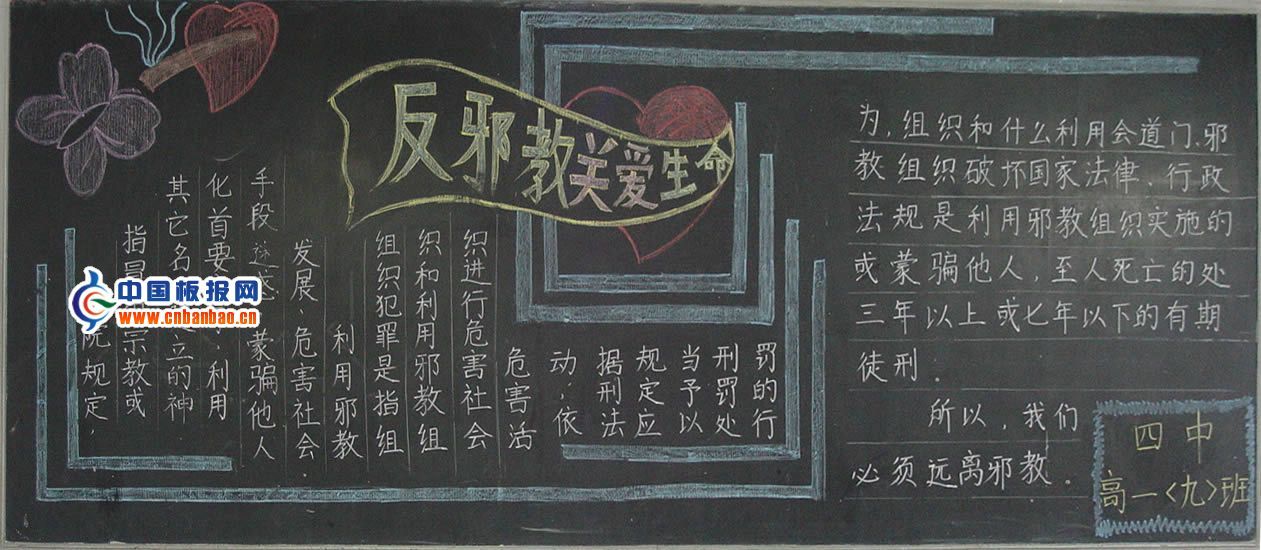 反邪教关爱生命
院规定,
指冒宗教或
其它名立的神
化首要利用
手段迷惑蒙骗他人
发展、危害社会.
利用邪教
组织犯罪是指组
织和利用邪教组
织进行危害社会
危害活
动;依
据刑法
规定应
当予以
刑罚处
罚的行
为,组织和什么利用会道门、邪
教组织破坏国家法律、行政
法规是利用邪教组织实施的
或蒙骗他人,至人死亡的处
三年以上或七年以下的有期
徒刑.
所以,我们
必须远离邪教.
四中
高一<九>班
中国板报网
www.cnbanbao.cn